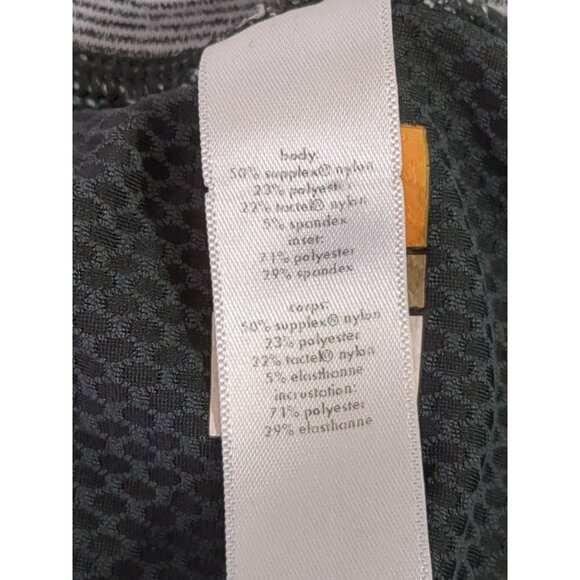 body:
50% supplex® nylon
23% polyester
22% tactel® nylon
5% spandex
inset:
71% polyester
29% spandex
corps:
50% supplex® nylon
23% polyester
22% tactel® nylon
5% elasthanne
incrustation:
71% polyester
29% elasthanne